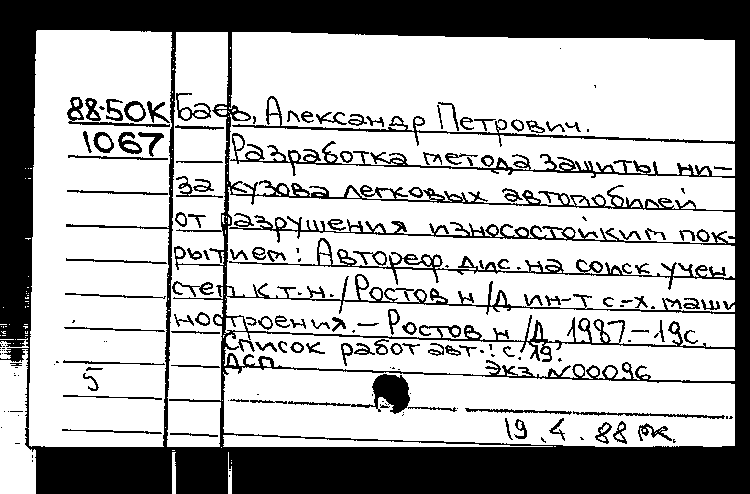 88-50К Баев, Александр Петрович.
1067 Разработка метода защиты ни-
за кузова легковых автомобилей
от разрушения износостойким пок-
рытием: Автореф. дис. на соиск. учен.
степ. к.т.н. / Ростов н/Д ин-т с.-х. маши
ностроения. – Ростов н/Д, 1987. – 19с.
Список работ авт.: с. 19.
ДСП. Экз. N 00096
5
19.4.88